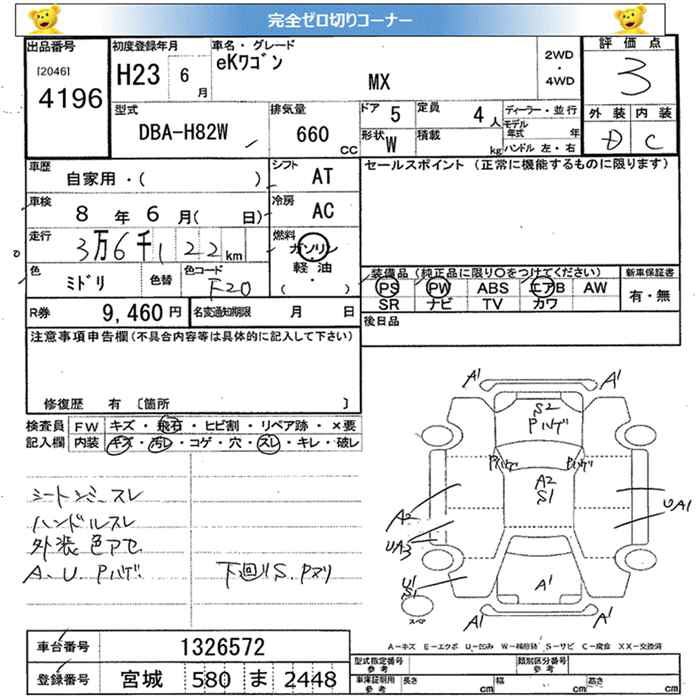 完全ゼロ切りコーナー
出品番号
[2046]
4196
初度登録年月
H23 6月
車名・グレード
eKワゴン
MX
2WD
・
4WD
評価点
3
外装 内装
D C
型式
DBA-H82W
排気量
660
CC
ドア 5
定員 4人
形状 W
積載 kg
ディーラー・並行
モデル
年式 年
ハンドル 左・右
車歴
自家用・( )
シフト
AT
車検
8年6月( 日)
冷房
AC
走行
3万6千122km
燃料
ガソリン
・
軽油
・
( )
色
ミドリ
色替
色コード
F20
R券 9,460円
名変通知期限 月 日
セールスポイント (正常に機能するものに限ります)
装備品 (純正品に限り〇をつけてください)
新車保証書
PS PW ABS エアB AW
SR ナビ TV カワ
有・無
後日品
注意事項申告欄(不具合内容等は具体的に記入して下さい)
修復歴 有 〔箇所 〕
検査員
記入欄
FW キズ・飛石・ヒビ割・リペア跡・×要
内装 キズ・汚レ・コゲ・穴・スレ・キレ・破レ
ハンドルスレ
外装色アセ
A、U、Pハゲ
下廻りS、Pヌリ
A1
A1
S2
Pハゲ
Pハゲ
Pハゲ
A2
S1
A2
UA3
UA1
U1
S1
スペア
A1
A1
A1
A-キズ E-エクボ U-凹み W-補修跡 S-サビ C-腐食 XX-交換済
車台番号 1326572
登録番号 宮城 580 ま 2448
型式指定番号
参考
類別区分番号
参考
車庫証明用
参考
長さ cm
幅 cm
高さ cm